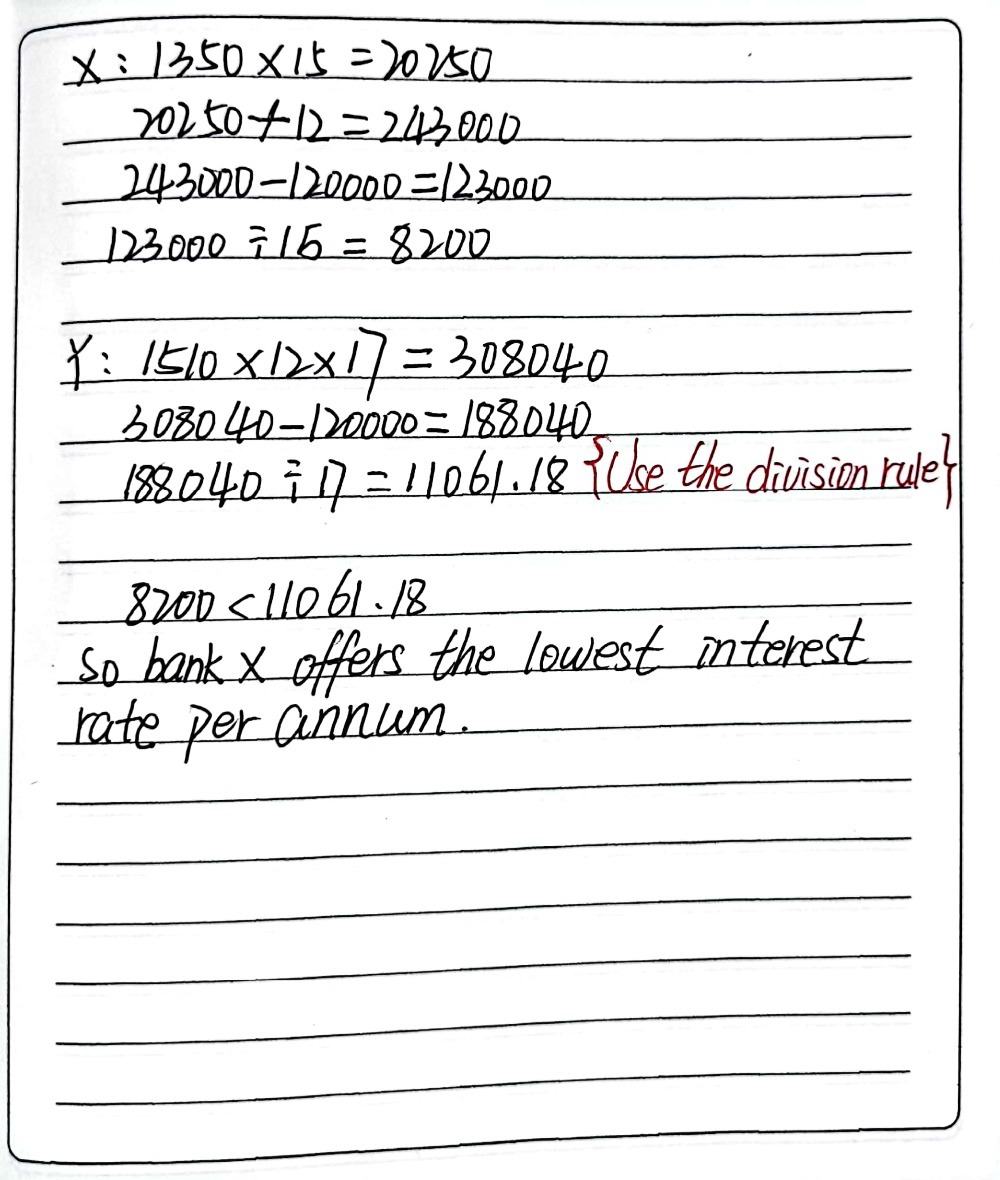 X: 1350×15=20250
20250+12=243000
243000-120000=123000
123000÷15=8200
Y: 1510×12×17=308040
308040-120000=188040
188040÷17=11061.18 {Use the division rule}
8200<11061.18
So bank X offers the lowest interest
rate per annum.